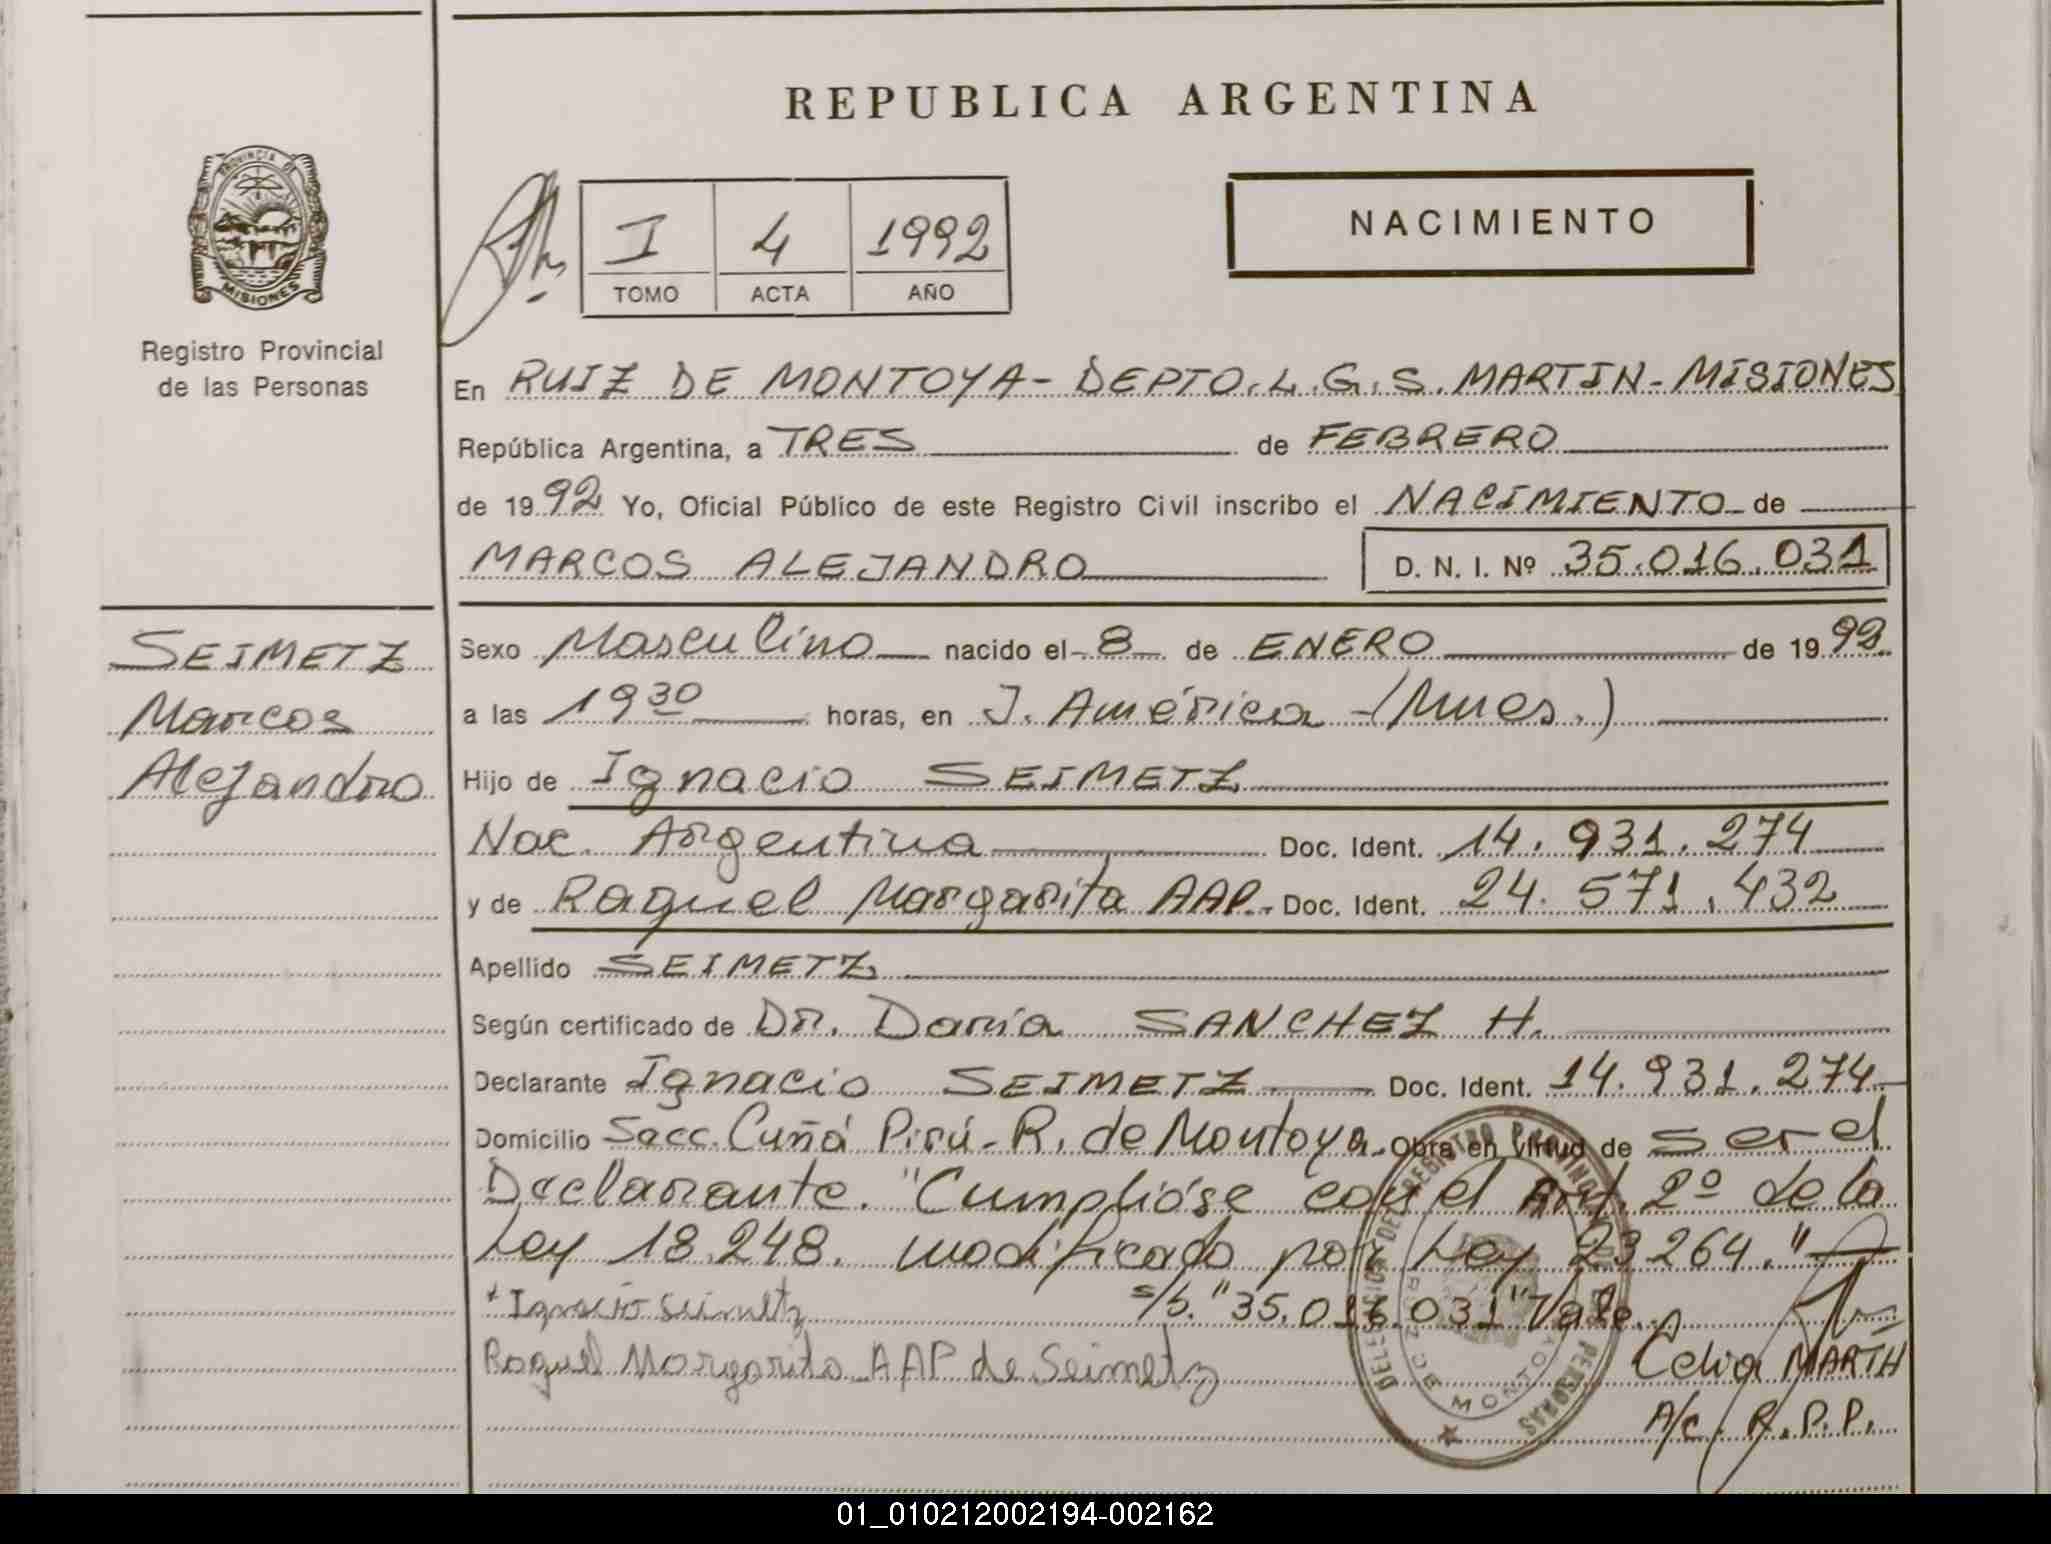 REPUBLICA ARGENTINA
PROVINCIA DE
MISIONES
Registro Provincial
de las Personas
I 4 1992
TOMO ACTA AÑO
NACIMIENTO
En RUIZ DE MONTOYA - DEPTO. L. G. S. MARTIN - MISIONES
República Argentina, a TRES de FEBRERO
de 1992 Yo, Oficial Público de este Registro Civil inscribo el NACIMIENTO de
MARCOS ALEJANDRO D. N. I. Nº 35.016.031
SEIMETZ
Marcos
Alejandro
Sexo Masculino nacido el 8 de ENERO de 1992
a las 19 30 horas, en J. América - (Mnes.)
Hijo de Ignacio SEIMETZ
Nac. Argentina Doc. Ident. 14.931.274
y de Raquel Margarita AAP. Doc. Ident. 24.571.432
Apellido SEIMETZ
Según certificado de Dr. Daría SANCHEZ H.
Declarante Ignacio SEIMETZ Doc. Ident. 14.931.274
Domicilio Secc. Cuñá Pirú - R. de Montoya. Obra en virtud de ser el
Declarante. "Cumplióse con el Art. 2º de la
Ley 18.248. modificado por Ley 23264."
Ignacio Seimetz s/b. "35.016.031" Vale.
Raquel Margarita AAP de Seimetz
Celia MARTH
A/c. R.P.P.
MONTOYA
PERSONAS
01_010212002194-002162